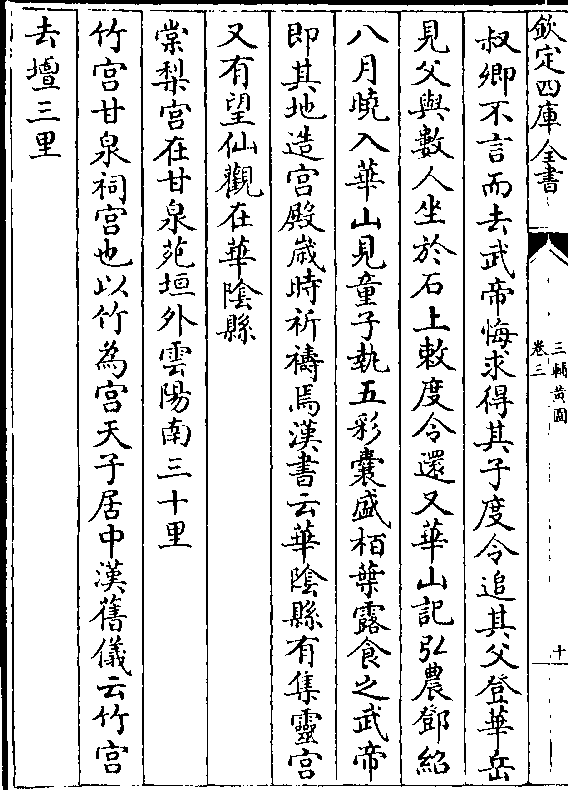 欽定四庫全書
三輔黄圖
卷三
十
叔卿不言而去武帝悔求得其子度令追其父登華岳
見父與數人坐於石上敕度令還又華山記弘農鄧紹
八月曉入華山見童子執五彩囊盛栢葉露食之武帝
即其地造宫殿歲時祈禱焉漢書云華陰縣有集靈宫
又有望仙觀在華陰縣
棠梨宫在甘泉苑垣外雲陽南三十里
竹宫甘泉祠宫也以竹為宫天子居中漢舊儀云竹宫
去壇三里